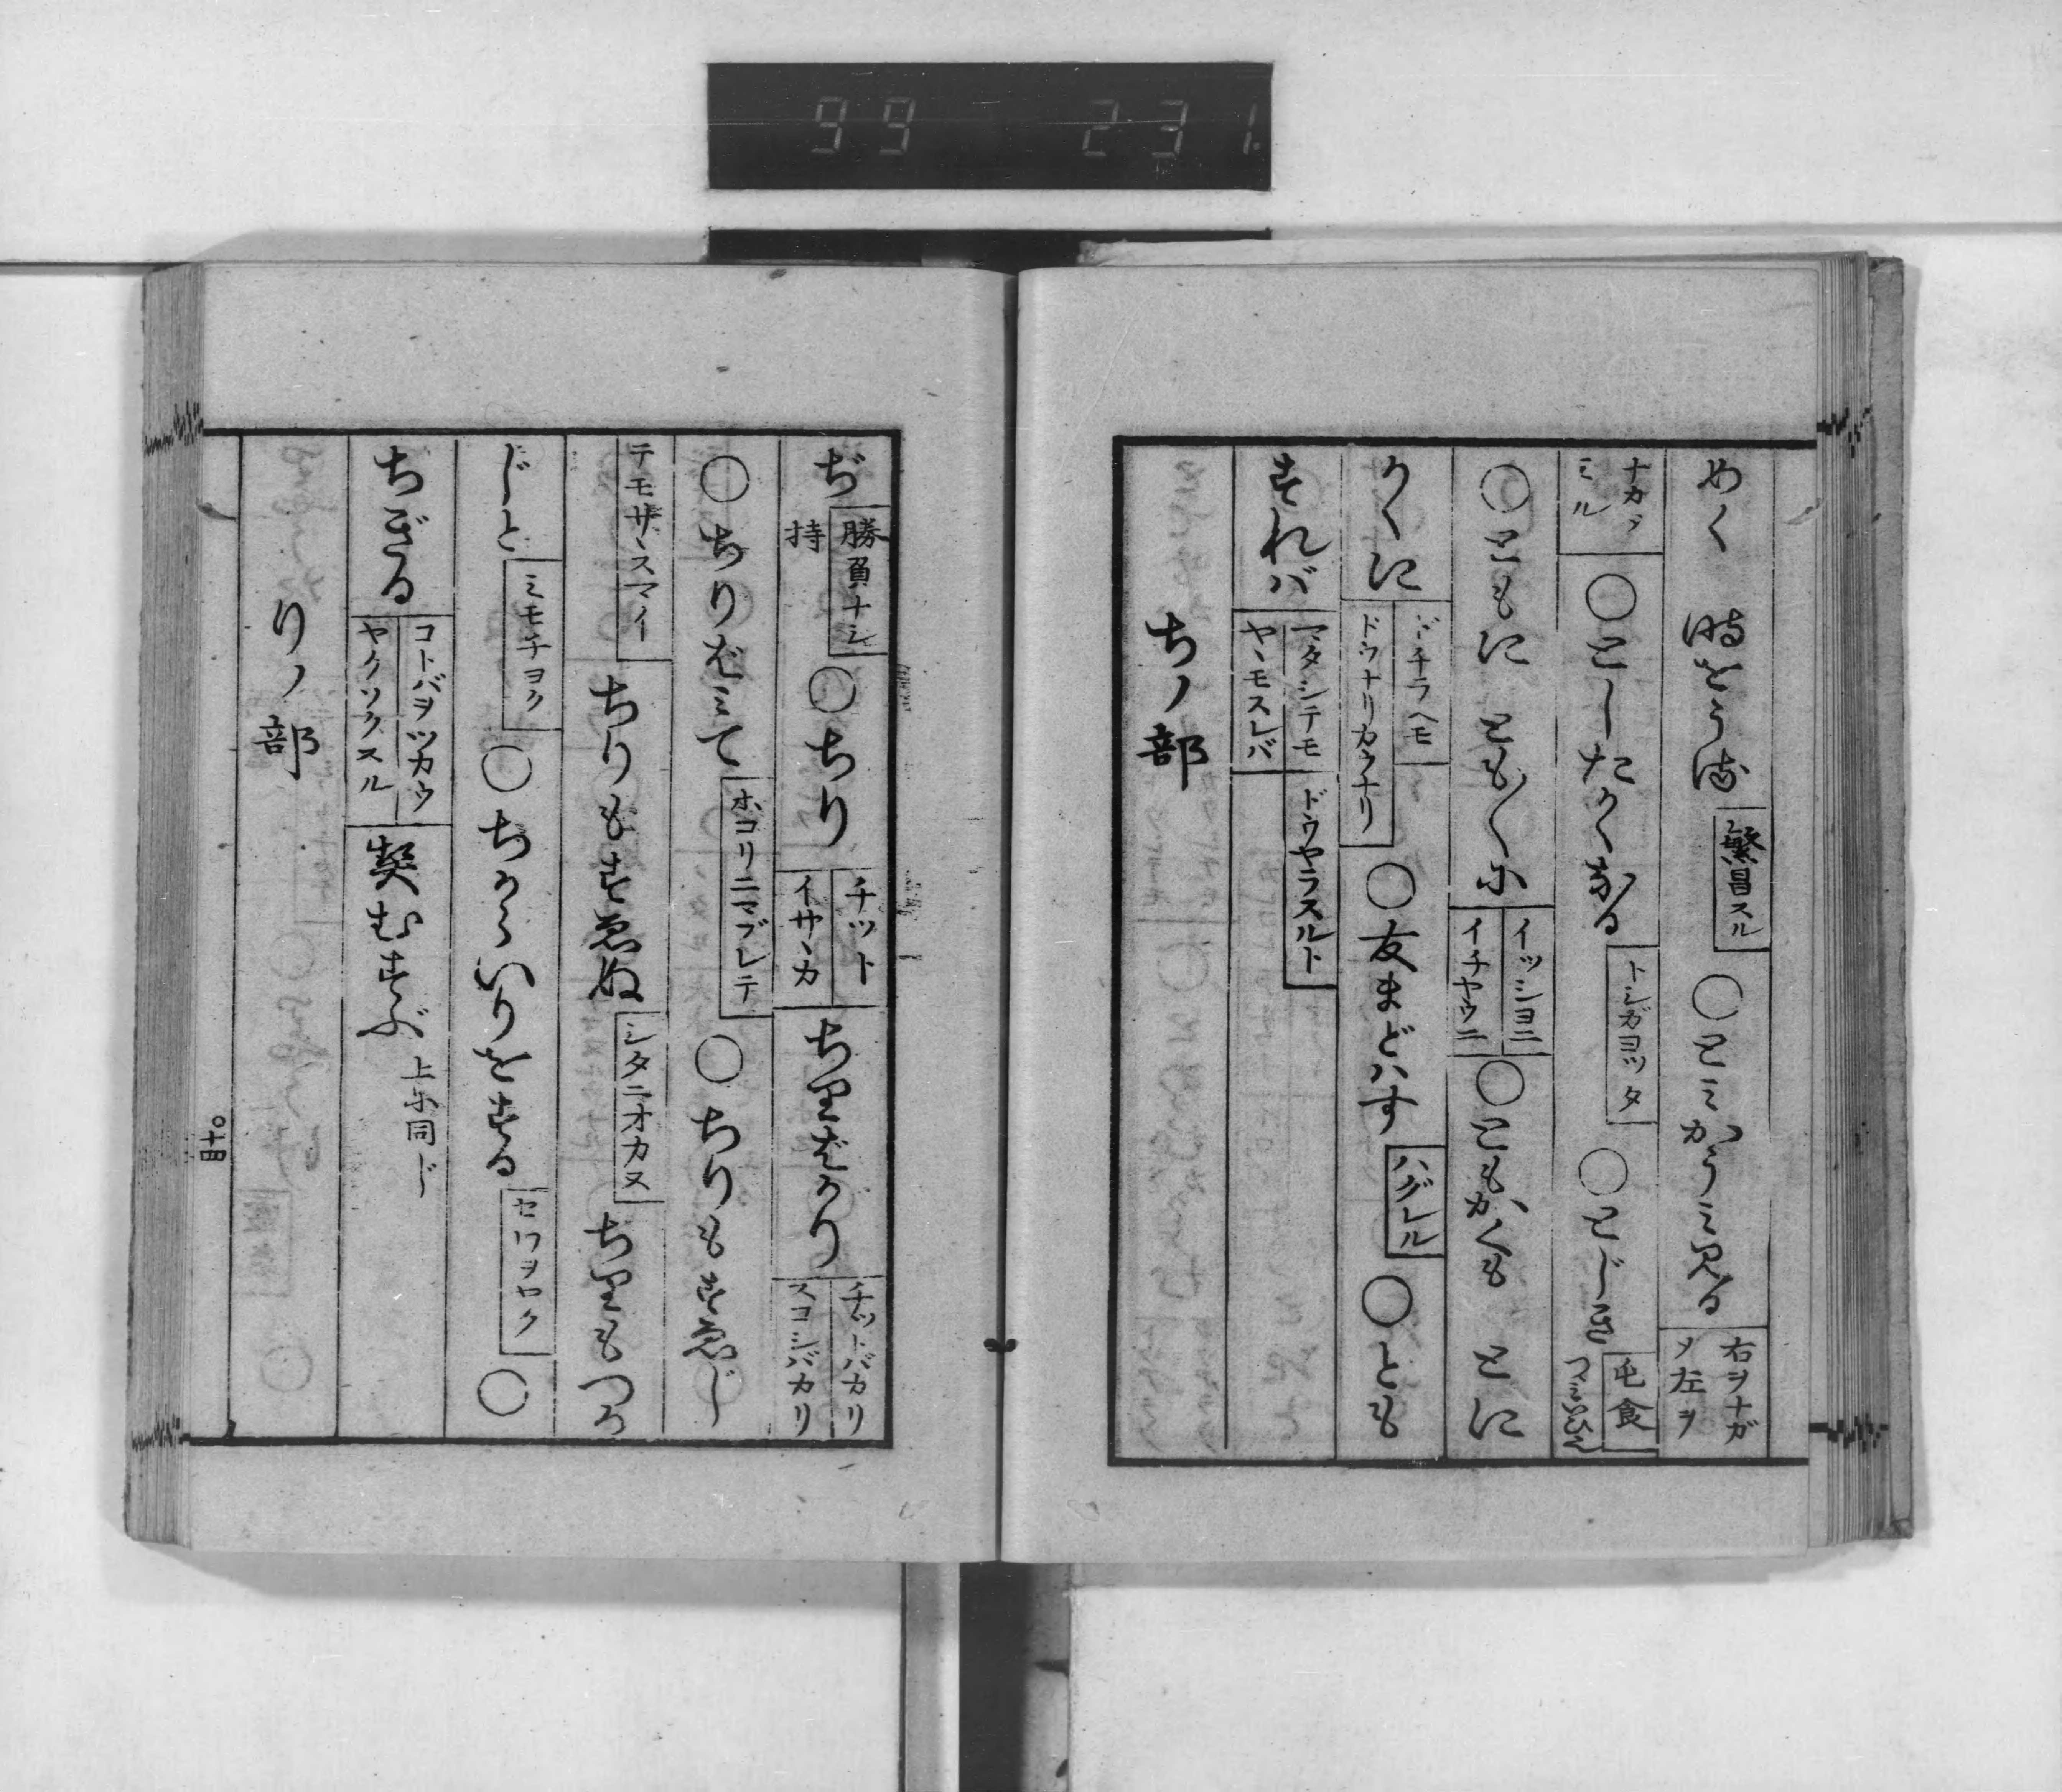 99 231.
めく 時をうる 繁昌スル ○とみかうみ見る 右ヲナガメ左ヲ
ナガメミル ○としたかくなる トシガヨッタ ○とじき 屯食 つゝみいひ
○ともに とも〱に イッシヨニ イチヤウニ ○ともかくも とに
かくに ドチラヘモ ドウナリカウナリ ○友まどはす ハグレル ○とも
すれば マタシテモ ヤヽモスレバ ドウヤラスルト
ちノ部
ぢ 勝負ナシ 持 ○ちり チット イサヽカ ちりばかり チットバカリ スコシバカリ
○ちりばみて ホコリニマブレテ ○ちりもすゑじ
テモサヽスマイ ちりもすゑぬ シタニオカヌ ちりもつか
じと ミモチヨク ○ちからいりをする セワヲヤク ○
ちぎる コトバヲツカウ ヤクソクスル 契むすぶ 上に同じ
りノ部
○十四